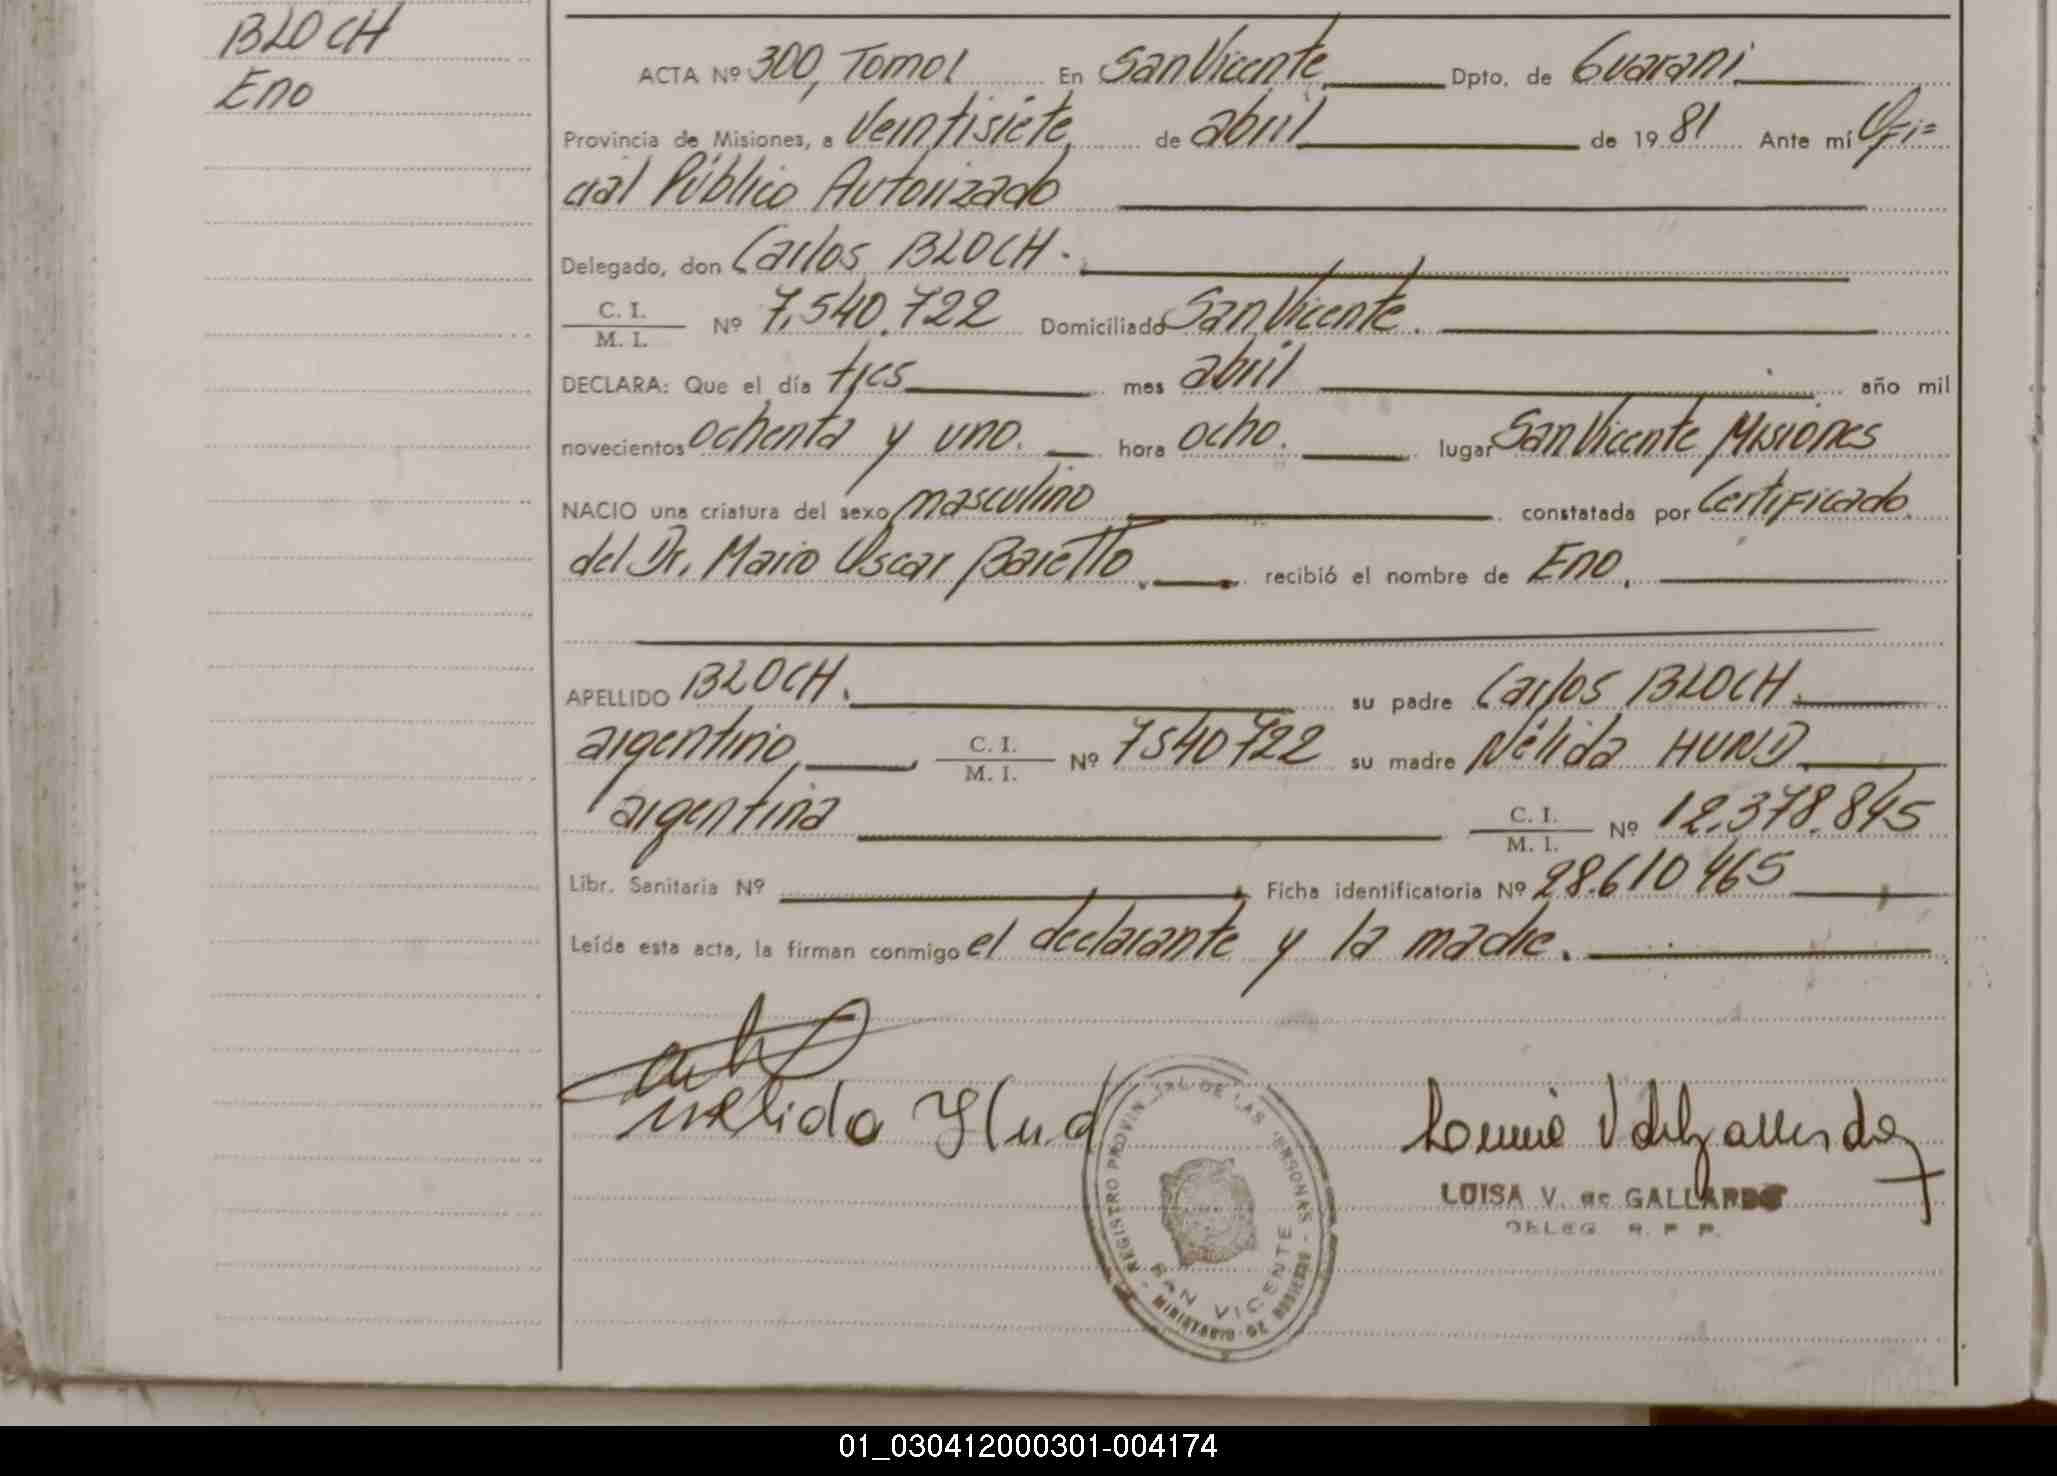 BLOCH
Eno
ACTA Nº 300, Tomo I En San Vicente Dpto. de Guaraní
Provincia de Misiones, a Veintisiete de abril de 1981 Ante mí Ofi=
cial Público Autorizado
Delegado, don Carlos BLOCH.
C. I.
M. I. Nº 7.540.722 Domiciliado San Vicente.
DECLARA: Que el día tres mes abril año mil
novecientos ochenta y uno. hora ocho. lugar San Vicente Misiones
NACIO una criatura del sexo masculino constatada por Certificado
del Dr. Mario Oscar Baretto. recibió el nombre de Eno.
APELLIDO BLOCH. su padre Carlos BLOCH.
argentino, C. I.
M. I. Nº 7540722 su madre Nélida HUND
argentina C. I.
M. I. Nº 12.378.845
Libr. Sanitaria Nº Ficha identificatoria Nº 28.610465
Leída esta acta, la firman conmigo el declarante y la madre.
Nelida Hund
REGISTRO PROVINCIAL DE LAS PERSONAS - MINISTERIO DE GOBIERNO -
SAN VICENTE
LUISA V. de GALLARDO
DELEG. R. P. P.
01_030412000301-004174